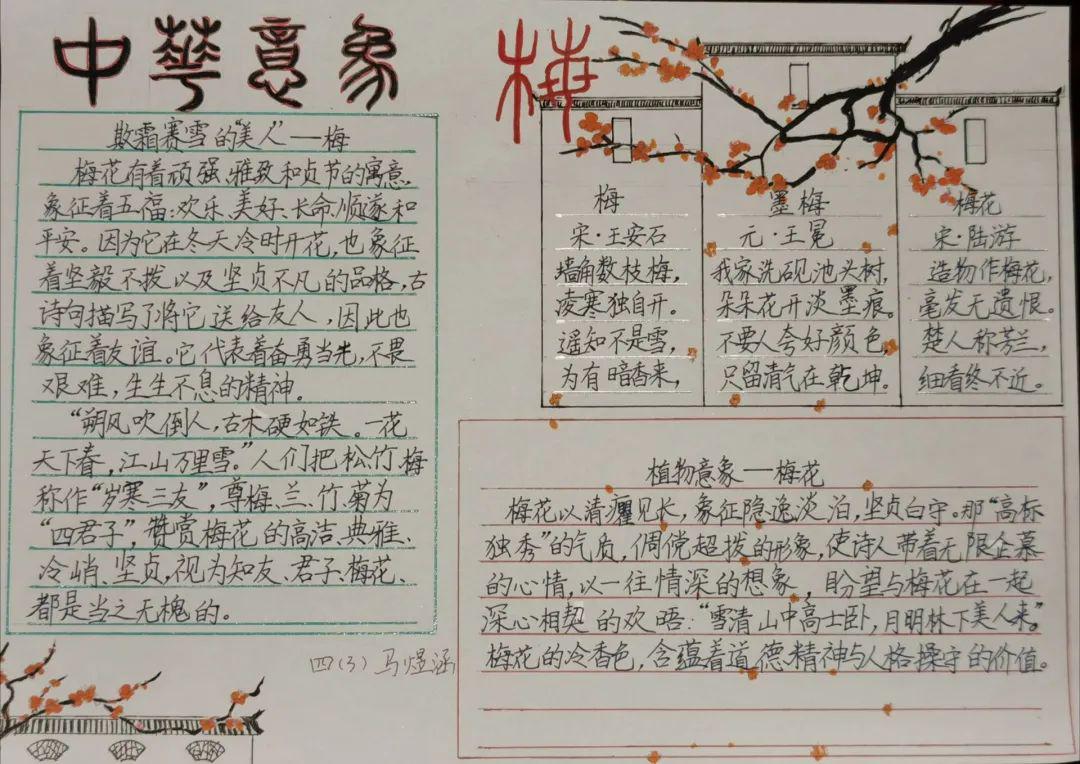 中華意象
梅
欺霜赛雪的“美人”——梅
梅花有着顽强、雅致和贞节的寓意,
象征着五福:欢乐、美好、长命、顺遂和
平安。因为它在冬天冷时开花,也象征
着坚毅不拨以及坚贞不凡的品格,古
诗句描写了将它送给友人,因此也
象征着友谊。它代表着奋勇当先,不畏
艰难,生生不息的精神。
“朔风吹倒人,古木硬如铁。一花
天下春,江山万里雪。”人们把松、竹、梅
称作“岁寒三友”,尊梅、兰、竹、菊为
“四君子”,赞赏梅花的高洁、典雅、
冷峭、坚贞,视为知友、君子、梅花、
都是当之无槐的。
四(3) 马煜涵
梅
宋·王安石
墙角数枝梅,
凌寒独自开。
遥知不是雪,
为有暗香来,
墨梅
元·王冕
我家洗砚池头树,
朵朵花开淡墨痕。
不要人夸好颜色,
只留清气在乾坤。
梅花
宋·陆游
造物作梅花,
毫发无遗恨。
楚人称芳兰,
细看终不近。
植物意象——梅花
梅花以清癯见长,象征隐逸淡泊,坚贞自守。那“高标
独秀”的气质,倜傥超拔的形象,使诗人带着无限企慕
的心情,以一往情深的想象,盼望与梅花在一起
深心相契的欢晤:“雪清山中高士卧,月明林下美人来。”
梅花的冷香色,含蕴着道德精神与人格操守的价值。